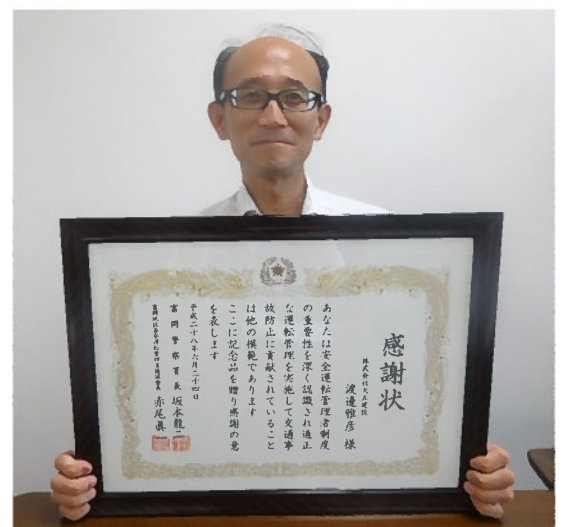 感謝状
株式会社大五建設
渡邊雅彦 様
あなたは安全運転管理者制度
の重要性を深く認識され適正
な運転管理を実施して交通事
故防止に貢献されていること
は他の模範であります
ここに記念品を贈り感謝の意
を表します
平成二十八年六月二十四日
富岡警察署長 坂本龍二
富岡地区安全運転管理者協議会長 赤尾眞一